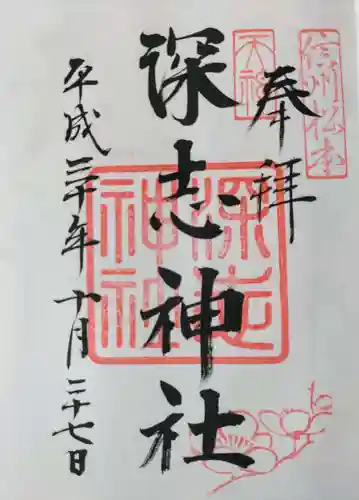 信州松本
天神
奉拝
深志神社
深志神社
平成三十年十月二十七日